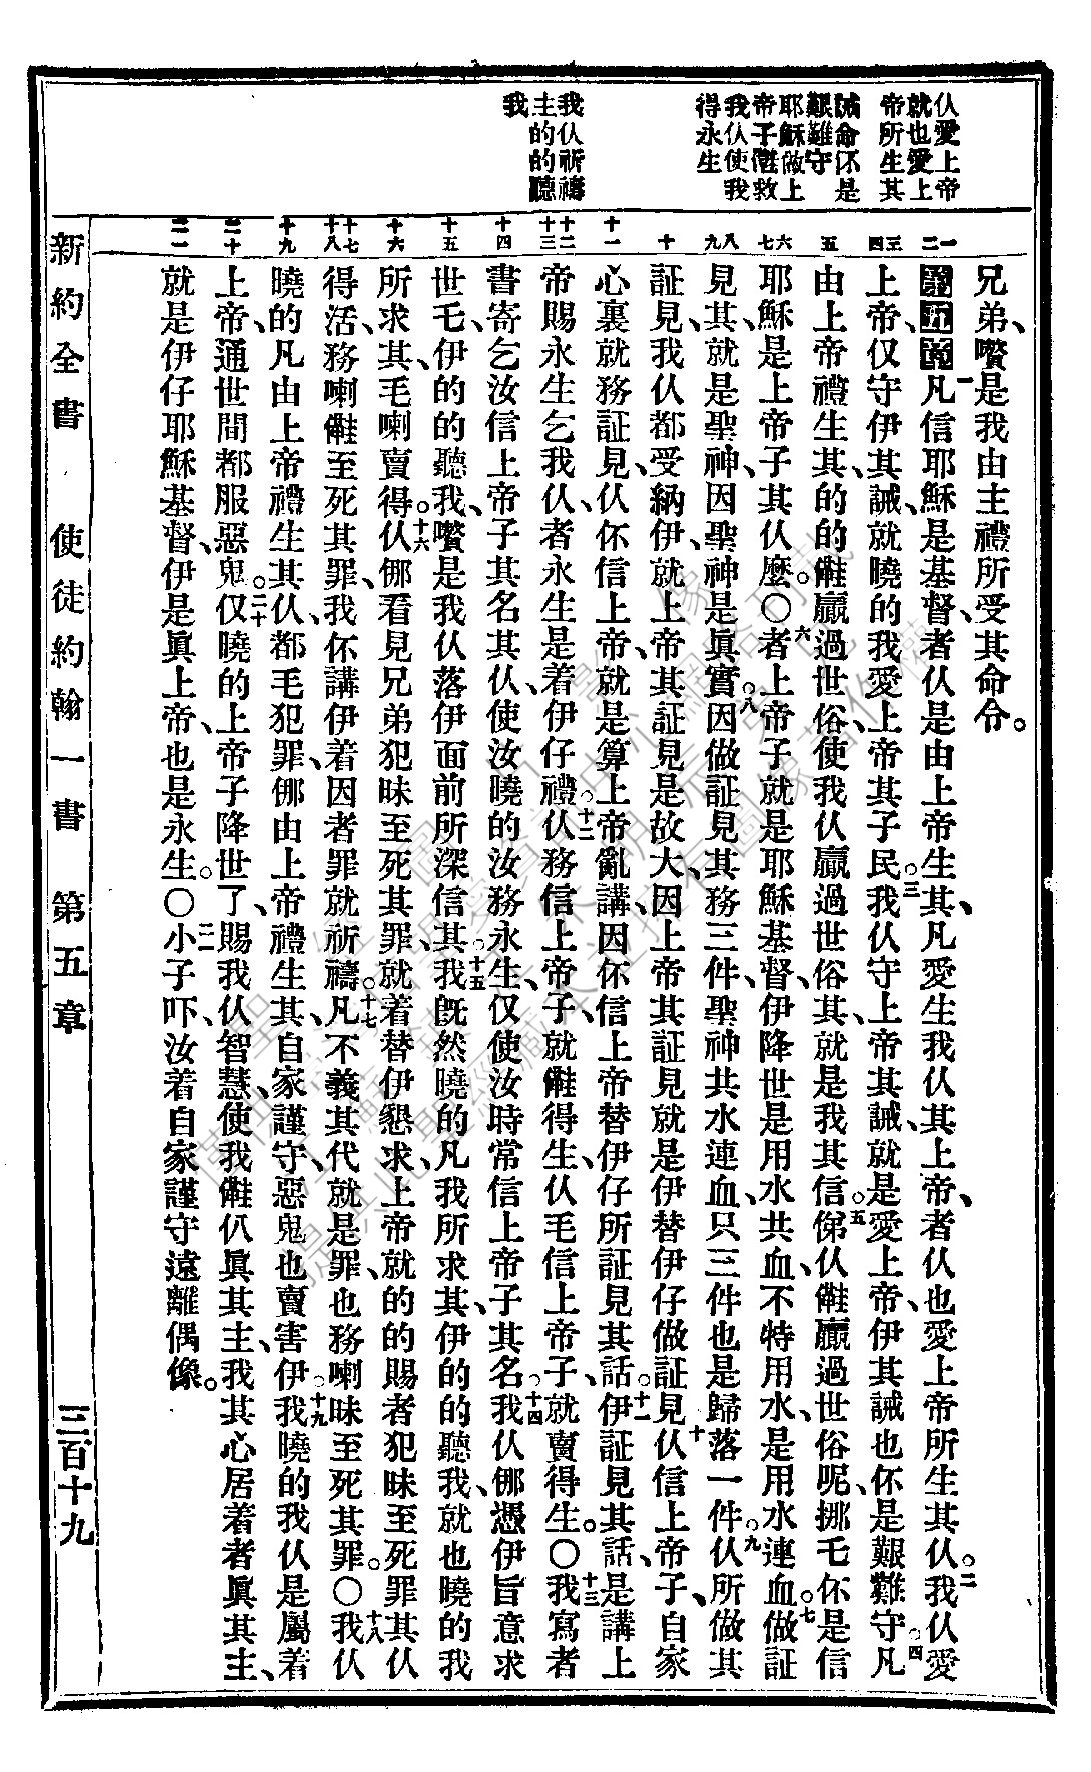 仫愛上帝
就也愛上
帝所生其
誡命伓是
艱難守
耶穌做上
帝子救
我仫使我
得永生
我仫祈禱
主的的聽
我
兄弟、嚽是我由主禮所受其命令。
第五章 一凡信耶穌是基督、者仫是由上帝生其、凡愛生我仫其上帝、者仫也愛上帝所生其仫。二我仫愛
上帝、仅守伊其誡、就曉的我愛上帝其子民。三我仫守上帝其誡、就是愛上帝、伊其誡也伓是艱難守。四凡
由上帝禮生其、的的䧹贏過世俗、使我仫贏過世俗其、就是我其信。五俤仫䧹贏過世俗呢、挪毛伓是信
耶穌是上帝子其仫麽。○六者上帝子就是耶穌基督、伊降世是用水共血、不特用水、是用水連血。七做証
見其、就是聖神、因聖神是眞實。八因做証見其務三件、聖神共水連血、只三件也是歸落一件。九仫所做其
証見、我仫都受納伊、就上帝其証見是故大、因上帝其証見就是伊替伊仔做証見。十仫信上帝子、自家
心裏就務証見、仫伓信上帝、就是算上帝亂講、因伓信上帝替伊仔所証見其話。十一伊証見其話、是講上
帝賜永生乞我仫、者永生是着伊仔禮。十二仫務信上帝子、就䧹得生、仫毛信上帝子、就賣得生。○十三我寫者
書寄乞汝信上帝子其名其仫、使汝曉的汝務永生、仅使汝時常信上帝子其名。十四我仫哪憑伊旨意求
世毛、伊的的聽我、嚽是我仫落伊面前所深信其。十五我旣然曉的凡我所求其、伊的的聽我、就也曉的我
所求其毛喇賣得。十六仫哪看見兄弟犯昧至死其罪、就着替伊懇求、上帝就的的賜者犯昧至死罪其仫
得活、務喇䧹至死其罪、我伓講伊着因者罪就祈禱。十七凡不義其代就是罪、也務喇昧至死其罪。○十八我仫
曉的凡由上帝禮生其仫、都毛犯罪、哪由上帝禮生其、自家謹守、惡鬼也賣害伊。十九我曉的我仫是屬着
上帝、通世間都服惡鬼。二十仅曉的上帝子降世了、賜我仫智慧、使我䧹仈眞其主、我其心居着者眞其主、
就是伊仔耶穌基督、伊是眞上帝、也是永生。○二一小子吓、汝着自家謹守、遠離偶像。
新約全書 使徒約翰一書 第五章 三百十九